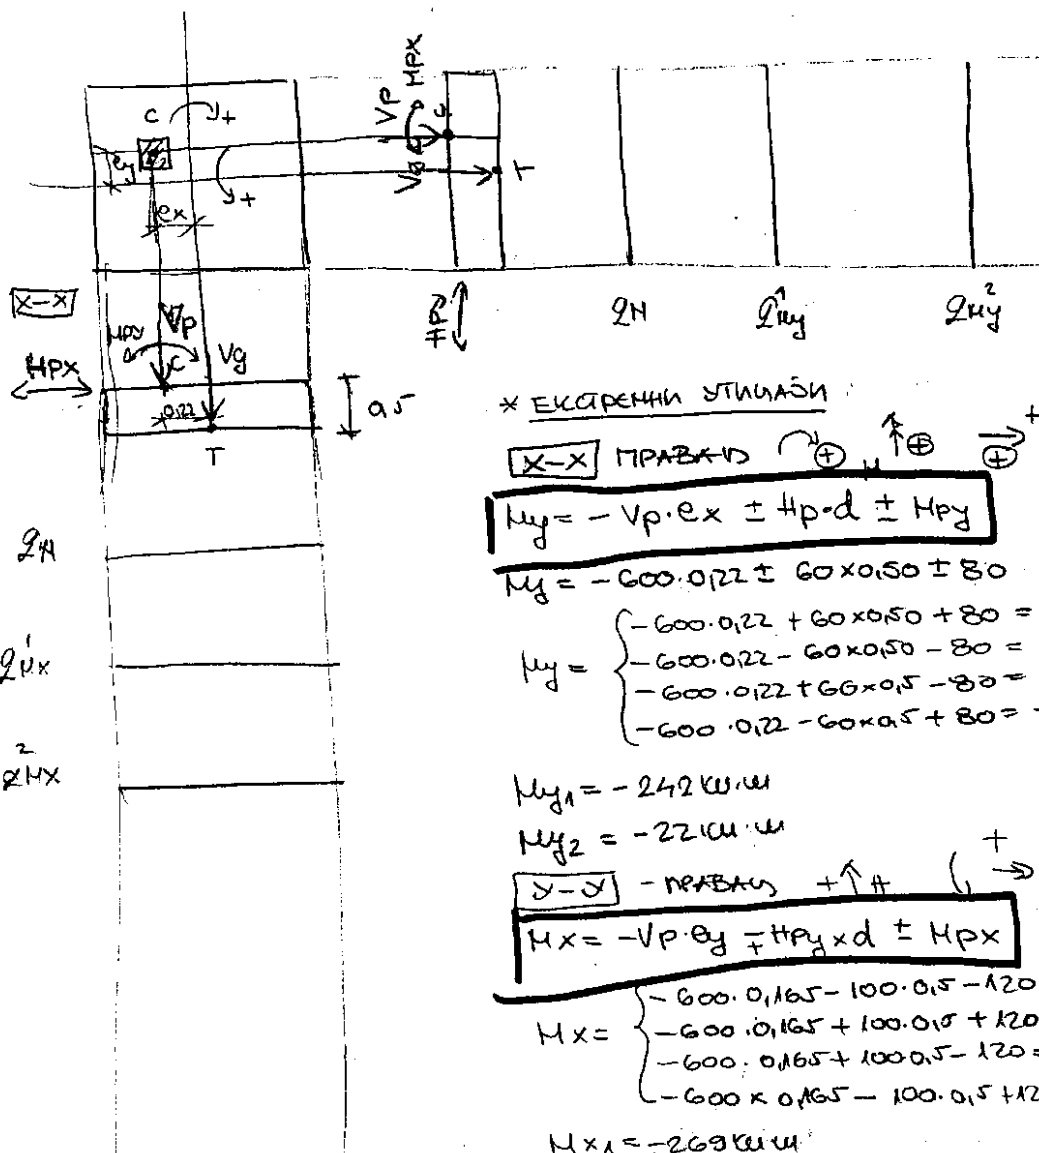 C
+
ey
+
ex
Vp
Mpx
Vg
C
T
X-X
Mpy
Vp
Vg
Hpx
C
0,22
0,5
T
qN
q¹My
q²My
* ЕКСТРЕМНИ УТИЦАЈИ:
X-X ПРАВАЦ + + +
My = - Vp·ex ± Hp·d ± Mpy
My = -600·0,22 ± 60x0,50 ± 80
My =
-600·0,22 + 60x0,50 + 80 =
-600·0,22 - 60x0,50 - 80 =
-600·0,22 + 60x0,5 - 80 =
-600·0,22 - 60x0,5 + 80 = -
My1 = -242 kN·m
My2 = -22 kN·m
Y-Y - ПРАВАЦ + H +
Mx = -Vp·ey ∓ Hpy x d ± Mpx
Mx =
-600·0,165 - 100·0,5 - 120
-600·0,165 + 100·0,5 + 120
-600·0,165 + 100·0,5 - 120 =
-600 x 0,165 - 100·0,5 + 12
Mx1 = -269 kN m
qN
q¹Mx
q²Mx